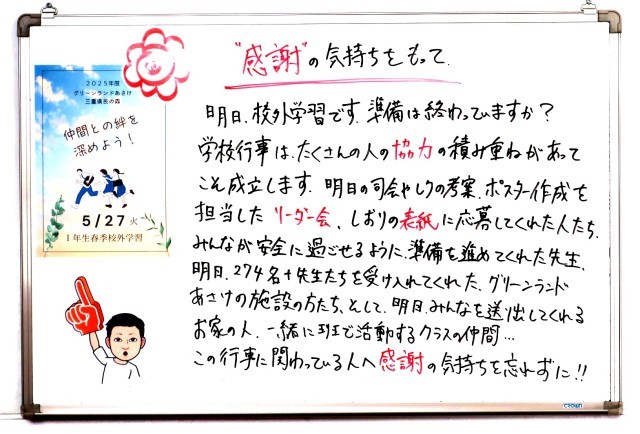 "感謝"の気持ちをもって.
2025年度
グリーンランドあさけ
三重県民の森
仲間との絆を
深めよう！
5/27 火
1年生春季校外学習
明日、校外学習です。準備は終わっていますか？
学校行事は、たくさんの人の協力の積み重ねがあって
こそ成立します。明日の司会やしおりの考案、ポスター作成を
担当したリーダー会、しおりの表紙に応募してくれた人たち、
みんなが安全に過ごせるように、準備を進めてくれた先生、
明日、274名+先生たちを受け入れてくれた、グリーンランド
あさけの施設の方たち、そして、明日、みんなを送り出してくれる
お家の人、一緒に班で活動するクラスの仲間…
この行事に関わっている人へ感謝の気持ちを忘れずに!!
CROWN